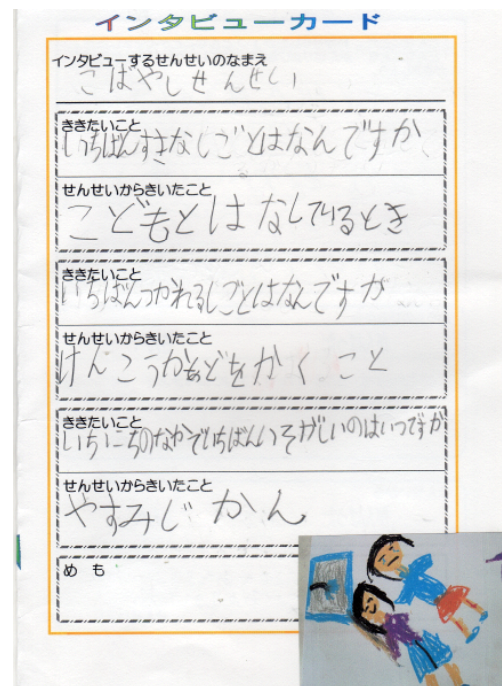 インタビューカード
インタビューするせんせいのなまえ
こばやしせんせい
ききたいこと
いちばんすきなしごとはなんですか
せんせいからきいたこと
こどもとはなしているとき
ききたいこと
いちばんつかれるしごとはなんですか
せんせいからきいたこと
けんこうかあどをかくこと
ききたいこと
いちにちのなかでいちばんいそがしいのはいつですか
せんせいからきいたこと
やすみじかん
めも